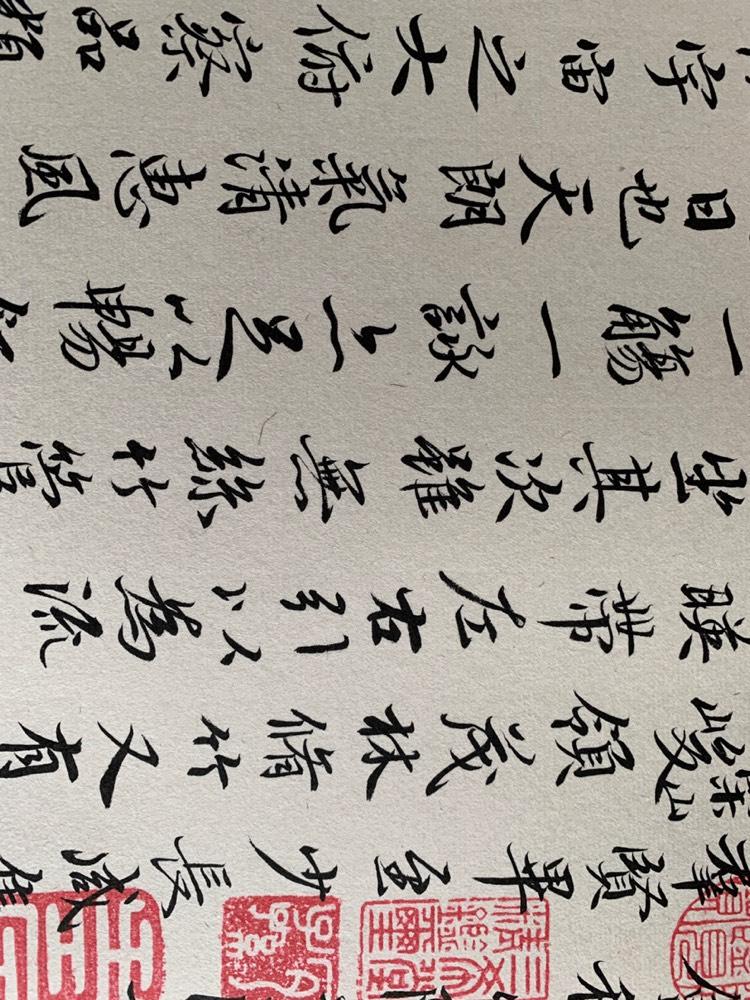 羣賢畢至少長咸集
崇山峻領茂林脩竹又有
暎帶左右引以為流
坐其次雖無絲竹管
一觴一詠亦足以暢
日也天朗氣清惠風
宇宙之大俯察品類